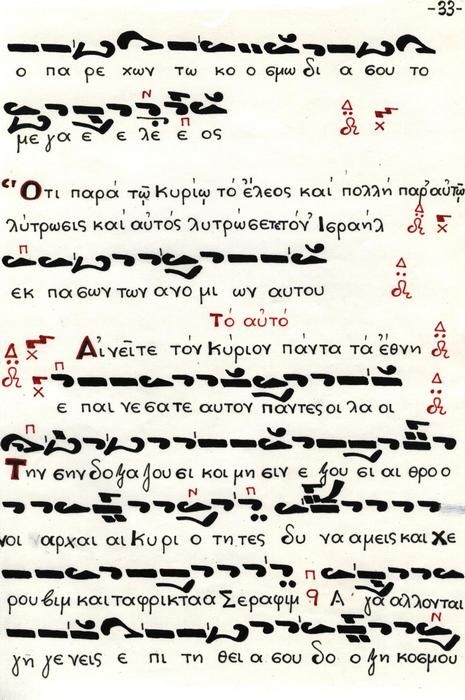 -33-
ο πα ρε χων τω κο ο σμω δι α σου το
με γα ε ε λε ε ος
Ὅτι παρά τῷ Κυρίῳ τό ἔλεος καί πολλή παρ' αὐτῷ
λύτρωσις καί αὐτός λυτρώσεται τόν Ισραήλ
εκ πα σων των ανο μι ων αυτου
Τό αὐτό
Αἰνεῖτε τόν Κύριον πάντα τά ἔθνη
ε παι νε σα τε αυτον παντες οι λα οι
Την σην δο ξα ζου σι κοι μη σιν ε ξου σι αι θρο ο
νοι αρχαι αι Κυρι ο τη τες δυ να αμεις και Χε
ρου βιμ και τα φρικτα α Σεραφιμ Α γα αλλονται
γη γε νεις ε πι τη θει α σου δο ο ξη κοσμου